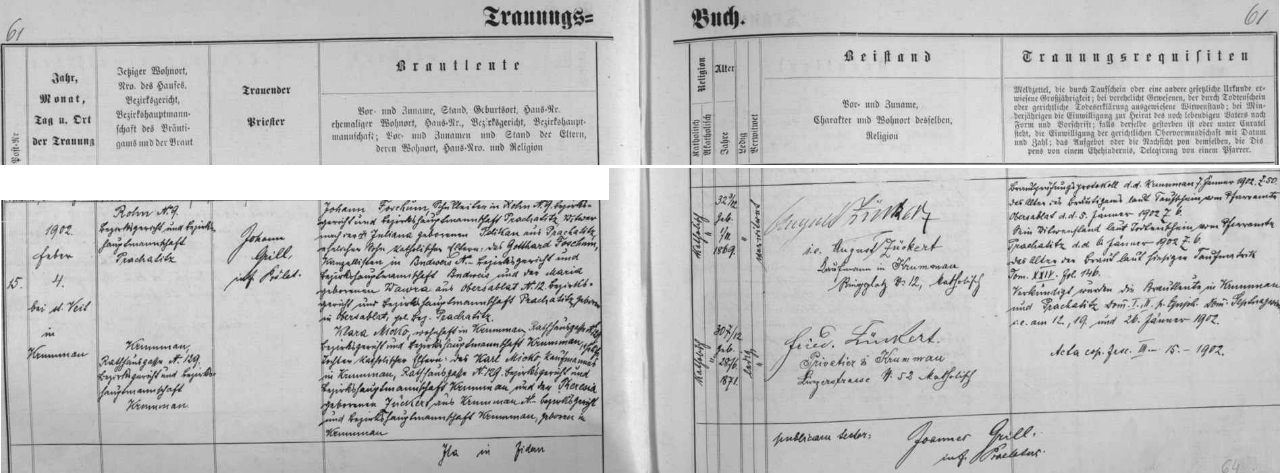 61
Trauungs=
Buch.
61
Post-Nr.
Jahr,
Monat,
Tag u. Ort
der Trauung
Jetziger Wohnort,
Nro. des Hauses,
Bezirksgericht,
Bezirkshauptmann-
schaft des Bräuti-
gams und der Braut
Trauender
Priester
Brautleute
Vor- und Zuname, Stand, Geburtsort, Haus-Nr.
ehemaliger Wohnort, Haus-Nr., Bezirksgericht, Bezirkshaupt-
mannschaft; Vor- und Zunamen und Stand der Eltern,
deren Wohnort, Haus-Nro. und Religion
Religion
Katholisch
Akatholisch
Alter
Jahre
Ledig
Verwitwet
Beistand
Vor- und Zuname,
Charakter und Wohnort desselben,
Religion
Trauungsrequisiten
Meldzettel, die durch Taufschein oder eine andere gesetzliche Urkunde er-
wiesene Großjährigkeit; bei verehelicht Gewesenen, der durch Todtenschein
oder gerichtliche Todeserklärung ausgewiesene Witwenstand; bei Min-
derjährigen die Einwilligung zur Heirat des noch lebenden Vaters nach
Form und Vorschrift; falls derselbe gestorben ist oder unter Curatel
steht, die Einwilligung der gerichtlichen Obervormundschaft mit Datum
und Zahl; das Aufgebot oder die Nachsicht von demselben, die Dis
pens von einem Ehehindernis, Delegirung von einem Pfarrer.
15.
1902
Feber
4.
bei St. Veit
in
Krummau
Rohn N. 9.
Bezirksgericht und Bezirks-
hauptmannschaft
Prachatitz
Krummau,
Rathhausgasse N. 129.
Bezirksgericht und Bezirks-
hauptmannschaft
Krummau
Johann
Grill,
inf. Prälat.
Johann Poschum, Schulleiter in Rohn N. 9. Bezirks-
gericht und Bezirkshauptmannschaft Prachatitz, Witwer
nach Juliana geborenen aus Prachatitz
ehelicher Sohn katholischer Eltern: des Gotthard Poschum,
Kanzellisten in N- Bezirksgericht und
Bezirkshauptmannschaft und der Maria
geborenen Wawra aus Obersablat N. 12 Bezirks-
gericht und Bezirkshauptmannschaft Prachatitz, geboren
in Obersablat, Bez. Prachatitz.
Klara in Krummau, Rathhausgasse N. 129
Bezirksgericht und Bezirkshauptmannschaft Krummau,
Tochter katholischer Eltern: des Karl Kaufmannes
in Krummau, Rathhausgasse N. 129. Bezirksgericht und
Bezirkshauptmannschaft Krummau und der Theresia
geborenen Zückert aus Krummau N- Bezirksgericht
und Bezirkshauptmannschaft Krummau, geboren in
Krummau
katholisch
"
32 3/12
geb.
1869.
verwitwet
"
katholisch
"
30 7/12
geb.
28/6
1871.
ledig
"
August Zückert
i.e. August Zückert
Kaufmann in Krummau
Ringplatz N. 12, katholisch
Zückert.
Privatier in Krummau
Bürgerstrasse N. 52 katholisch
Brautprüfungsprotokoll d.d. Krummau 7. Jänner 1902. Z. 50.
Das Alter des Bräutigams laut Taufschein vom Pfarramte
Obersablat d.d. 5. Jänner 1902 Z. 6.
Sein Witwenstand laut Todtenschein vom Pfarramte
Prachatitz d.d. 6. Jänner 1902 Z. 6.
Das Alter der Braut laut hiesiger Taufmatrik
Tom. XXIV. Fol. 146.
Verkündigt wurden die Brautleute in Krummau
und Prachatitz Dom. I. II. p. Epiph. Dom.
i.e. am 12., 19. und 26. Jänner 1902.
Acta cop. Fasc. III - 15 - 1902.
Ita in fidem
publicam testor:
Joannes Grill.
inf. Praelatus.
64